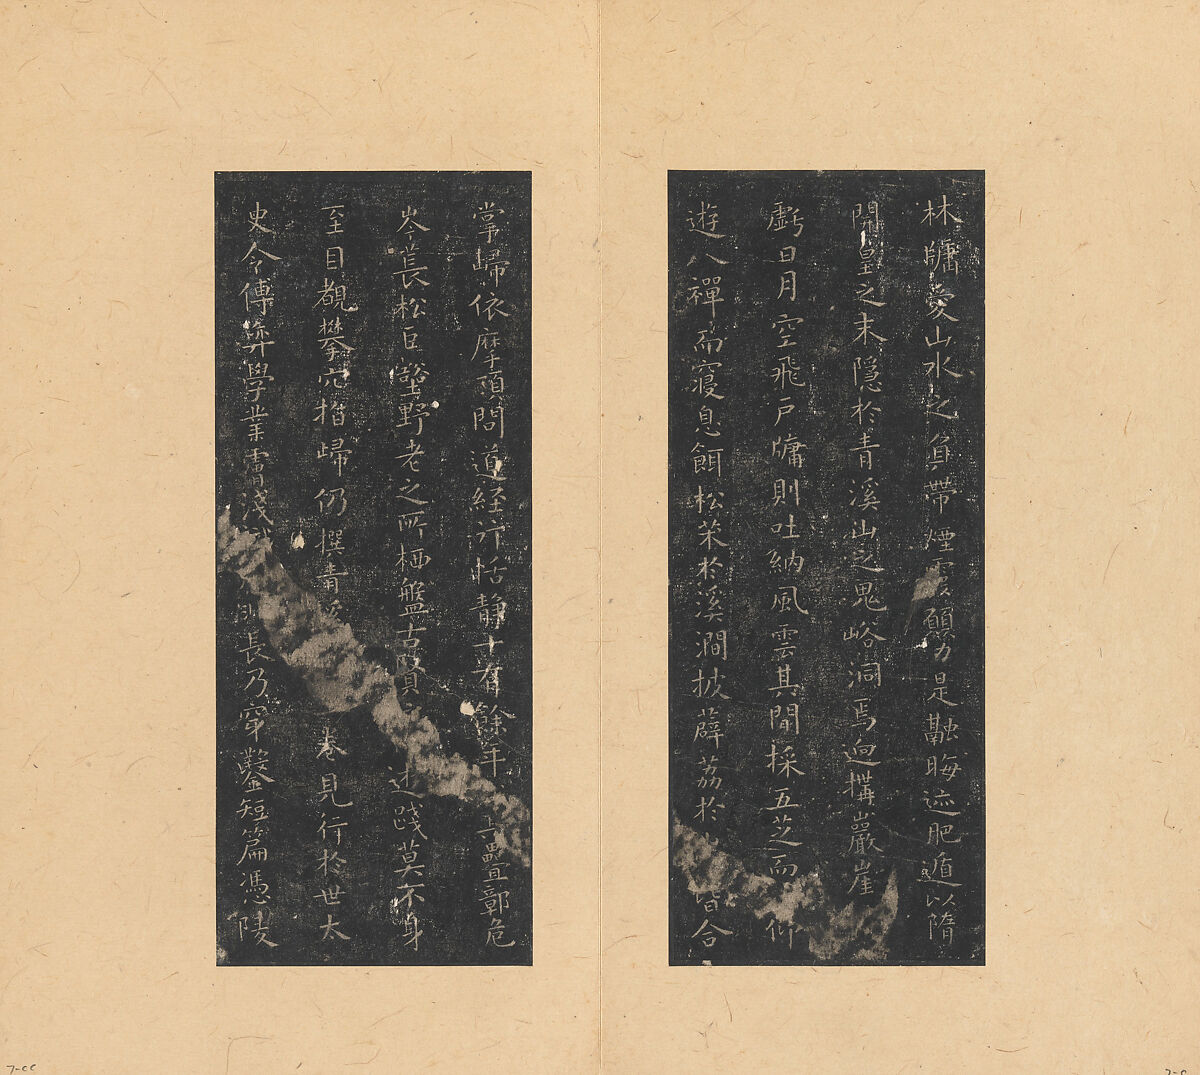 林牖爰山水之負帶煙霞願力是融晦迹肥遁以隋
開皇之末隱於青溪山之鬼峪洞焉迥構巖崖
虧日月空飛戶牖則吐納風雲其間採五芝而仰
遊八禪而寢息餌松茱於溪澗披薜荔於 皆合
掌歸依摩頂問道經行恬靜十有餘年 疊鄣危
岑長松巨壑野老之所栖盤古賢之 逃踐莫不身
至目覩攀穴指歸仍撰青 卷見行於世太
史令傅弈學業膚淺 長乃穿鑿短篇憑陵